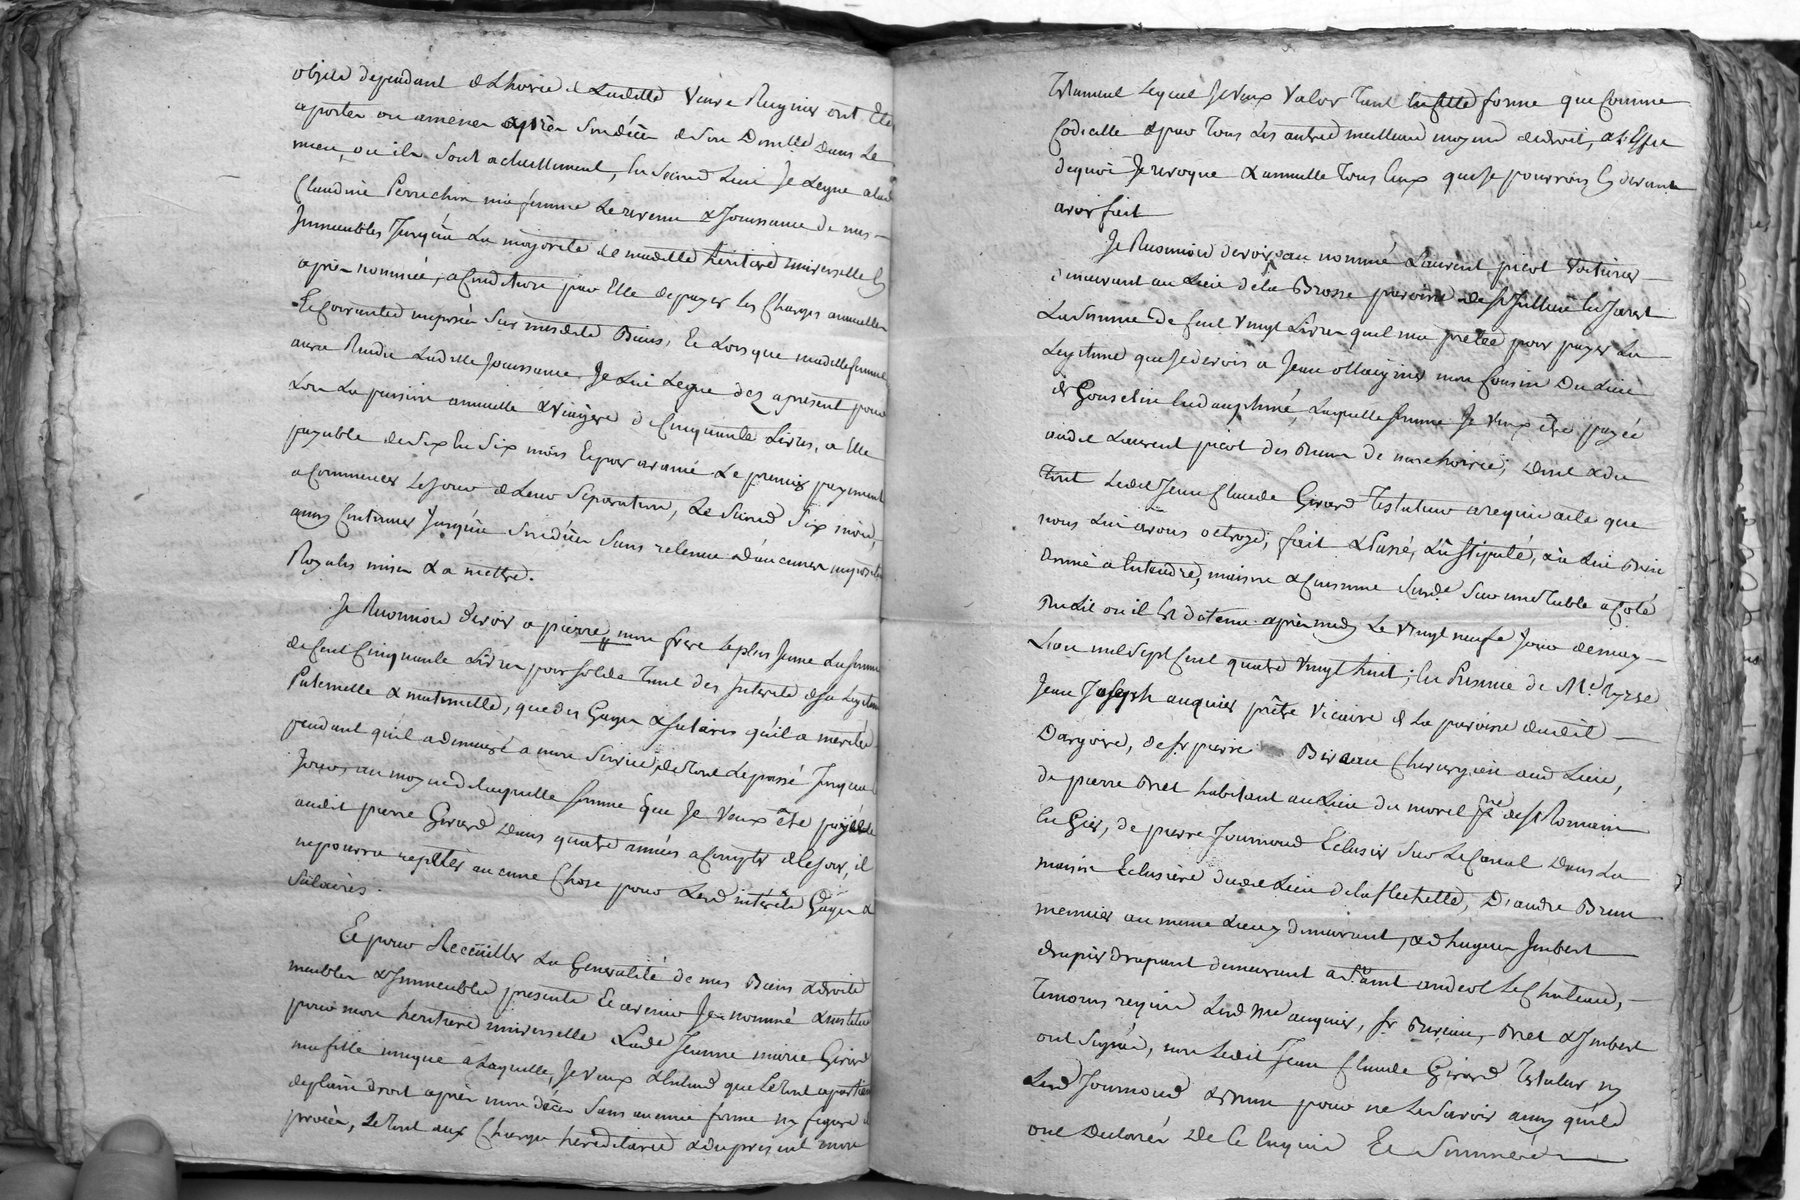 objets dependant de Lhoirie de Laditte Veuve Ruynier ont Eté
aporter ou amener après Son décès de Son Domlle dans Le
mien, ou ils Sont actuellement, En Second Lieu Je Legue a lad
Claudine Perrichon ma femme Le revenu & Jouissance de mes
Immeubles Jusqu'à La majorité de maditte héritiere universelle Cy
après nommée, a Condition par Elle de payer les Charges annuelles
Et Courantes imposées Sur mesdits Biens, Et Lorsque maditte femme
aura Rendu Laditte Jouissance Je Lui Legue dez apresent pour
Lors La pension annuelle & viagere de Cinquante Livres, a Elle
payable de Six En Six mois Et par avance Le premier payement
a Commencer Le Jour de Leur Séparation, Le Second Six mois,
ainsy Continuer Jusqu'à Son décès Sans retenue d'aucunes impositions
Royales mises & a mettre.
Je Reconnois devoir a pierre mon frere Le plus Jeune La Somme
de Cent Cinquante Livres pour Solde Tant des Interets de Sa Legitime
Paternelle & maternelle, que des Gages & Salaires qu'il a mérités
pendant qu'il a demeuré a mon Service, de Tout Le passé Jusqu'a
Jour, au moyen de Laquelle Somme que Je Veux être payable
audit pierre Girard Dans quatre années a Compter de Ce Jour, il
ne pourra repeter aucune Chose pour Lesd intérêts Gages &
Salaires.
Et pour Recüeiller La Generalité de mes Biens & droits
meubles & Immeubles presents Et avenir Je nomme & institue
pour mon heritiere universelle Lade Jeanne marie Girard
ma fille unique a Laquelle, Je veux & Entend que Le Tout apartienne
de plain droit après mon décès Sans aucune forme ny figure de
procès, Le Tout aux Charges héréditaires & du present mon
Testament Lequel Je Veux Valoir Tant En ditte forme que Comme
Codicille & par Tous Les autres meilleurs moyens de droit, a L'Effet
de quoi Je revoque & annulle Tous Ceux que Je pourrois Cy devant
avoir fait
Je Reconnois devoir au nommé Laurent picot Voiturier
demeurant au Lieu de la Brosse paroisse de St Jullien En Jarest
La Somme de Cent Vingt Livres quil ma pretée pour payer La
Legitime que Je devois a Jean ollagnier mon Cousin Du Lieu
de Goncelin En dauphiné, Laquelle Somme Je Veux être payée
audit Laurent picot des Biens de mon hoirie, dont & du
Tout Ledit Jean Claude Girard Testateur a requis acte que
nous Lui avons octroyé, fait & Passé, Lu Stipulé, & a Lui Bien
donné a Entendre, maison & Cuisine Susde Sur une Table a Coté
du Lit ou il Est détenu après midy Le Vingt neufe Jour de may
L'an mil Sept Cent quatre Vingt huit; En Presence de Me
Jean Joseph auquier prêtre Vicaire de La paroisse dudit
Dargoire, de Sr pierre Chirurgien aud Lieu,
de pierre Bret habitant au Lieu du morel psse de St Romain
En Gier, de pierre Journoud Eclusier Sur Le Canal Dans La
maison Eclusière dudit Lieu de la flechette, D'andre Brun
meunier au meme Lieu y demeurant, & d'hugues Imbert
drapier drapant demeurant a St andeol Le Chateau,
Temoins requis Led Me auquier, Sr Bret & Imbert
ont Signé, non Ledit Jean Claude Girard Testateur ny
Led Journoud & Brun pour ne Le Savoir ainsy qu'ils
ont Declarés De Ce Enquis Et Sommés